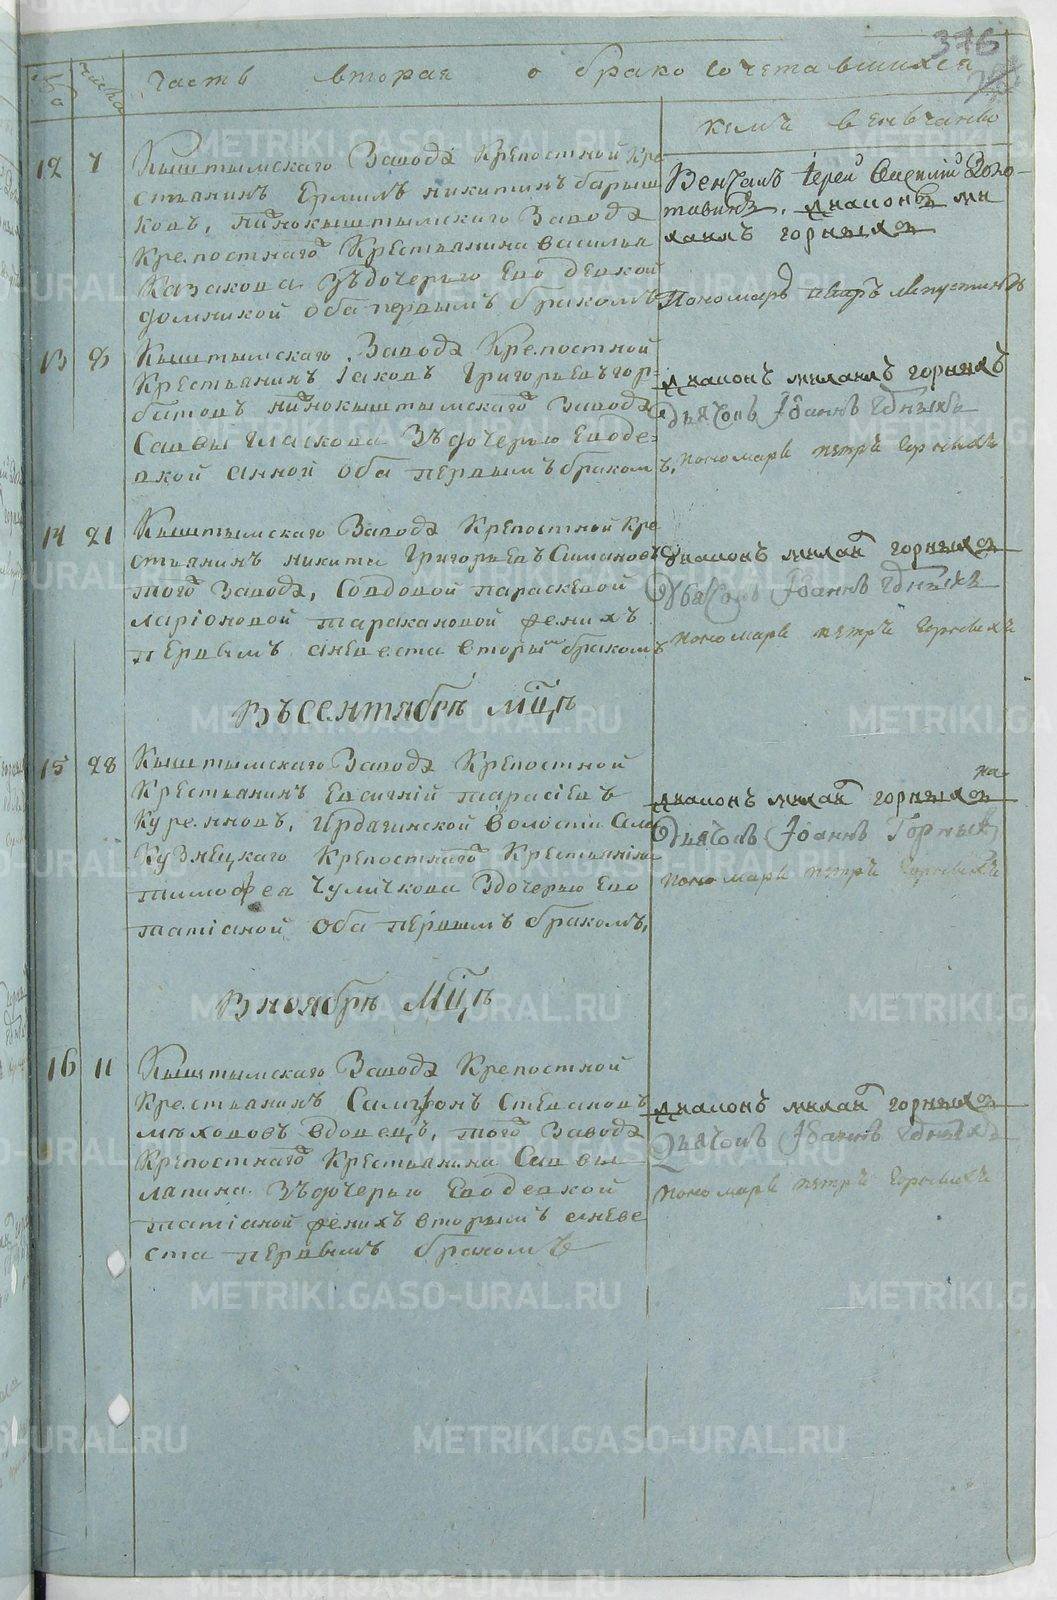 376
Часть вторая о бракосочетавшихся
числа
кемъ венъчаны
12 7 Кыштымскаго Завода Крепостной кре
стьянинъ Ермилъ никитинъ барыш
ковъ, нижнокыштымскаго Завода
Крепостнаго Крестьянина василья
Казакова Зъдочерью Ево девкой
домникой оба первымъ бракомъ
Венчалъ Іерей Василій
диаконъ ми
хаилъ горныхъ
Пономарь
13 8 Кыштымскаго Завода Крепостной
Крестьянинъ Іаковъ Григорьевъ гор
батовъ нижнокыштымскаго Завода
Саввы Гласкова Зъдочерью Еводе
вкой анной оба первымъ бракомъ,
диаконъ михаилъ горныхъ
Дьячокъ Іоаннъ Горныхъ
пономарь петръ Горныхъ
14 21 Кыштымскаго Завода Крепостной кре
стьянинъ никита Григорьевъ Симановъ
того Завода, Совдовой параскевой
ларіоновой таракановой женихъ
первымъ аневеста вторымъ бракомъ
диаконъ михаи горныхъ
Дьячокъ Іоаннъ Горныхъ
пономарь петръ Горныхъ
Въсентябрѣ мцѣ
15 28 Кыштымскаго Завода Крепостной
Крестьянинъ Евсигній тарасіевъ
Куренновъ, Ирдагинской волости Села
Кузнецкаго Крепостнаго Крестьянина
тимофеа Чуличкова Здочерью Ево
татіаной оба первымъ бракомъ,
диаконъ михаи горныхъ
Дьячокъ Іоаннъ Горныхъ
пономарь петръ Горныхъ
Вноябрѣ мцѣ
16 11 Кыштымскаго Завода Крепостной
Крестьянинъ Самсонъ Степановъ
мѣхововъ вдовецъ, того Завода
Крепостнаго Крестьянина Саввы
лапина Зъдочерью Еводевкой
татіаной женихъ вторымъ аневе
ста первымъ бракомъ
диаконъ михаи горныхъ
Дьячокъ Іоаннъ Горныхъ
пономарь петръ Горныхъ
METRIKI.GASO-URAL.RU